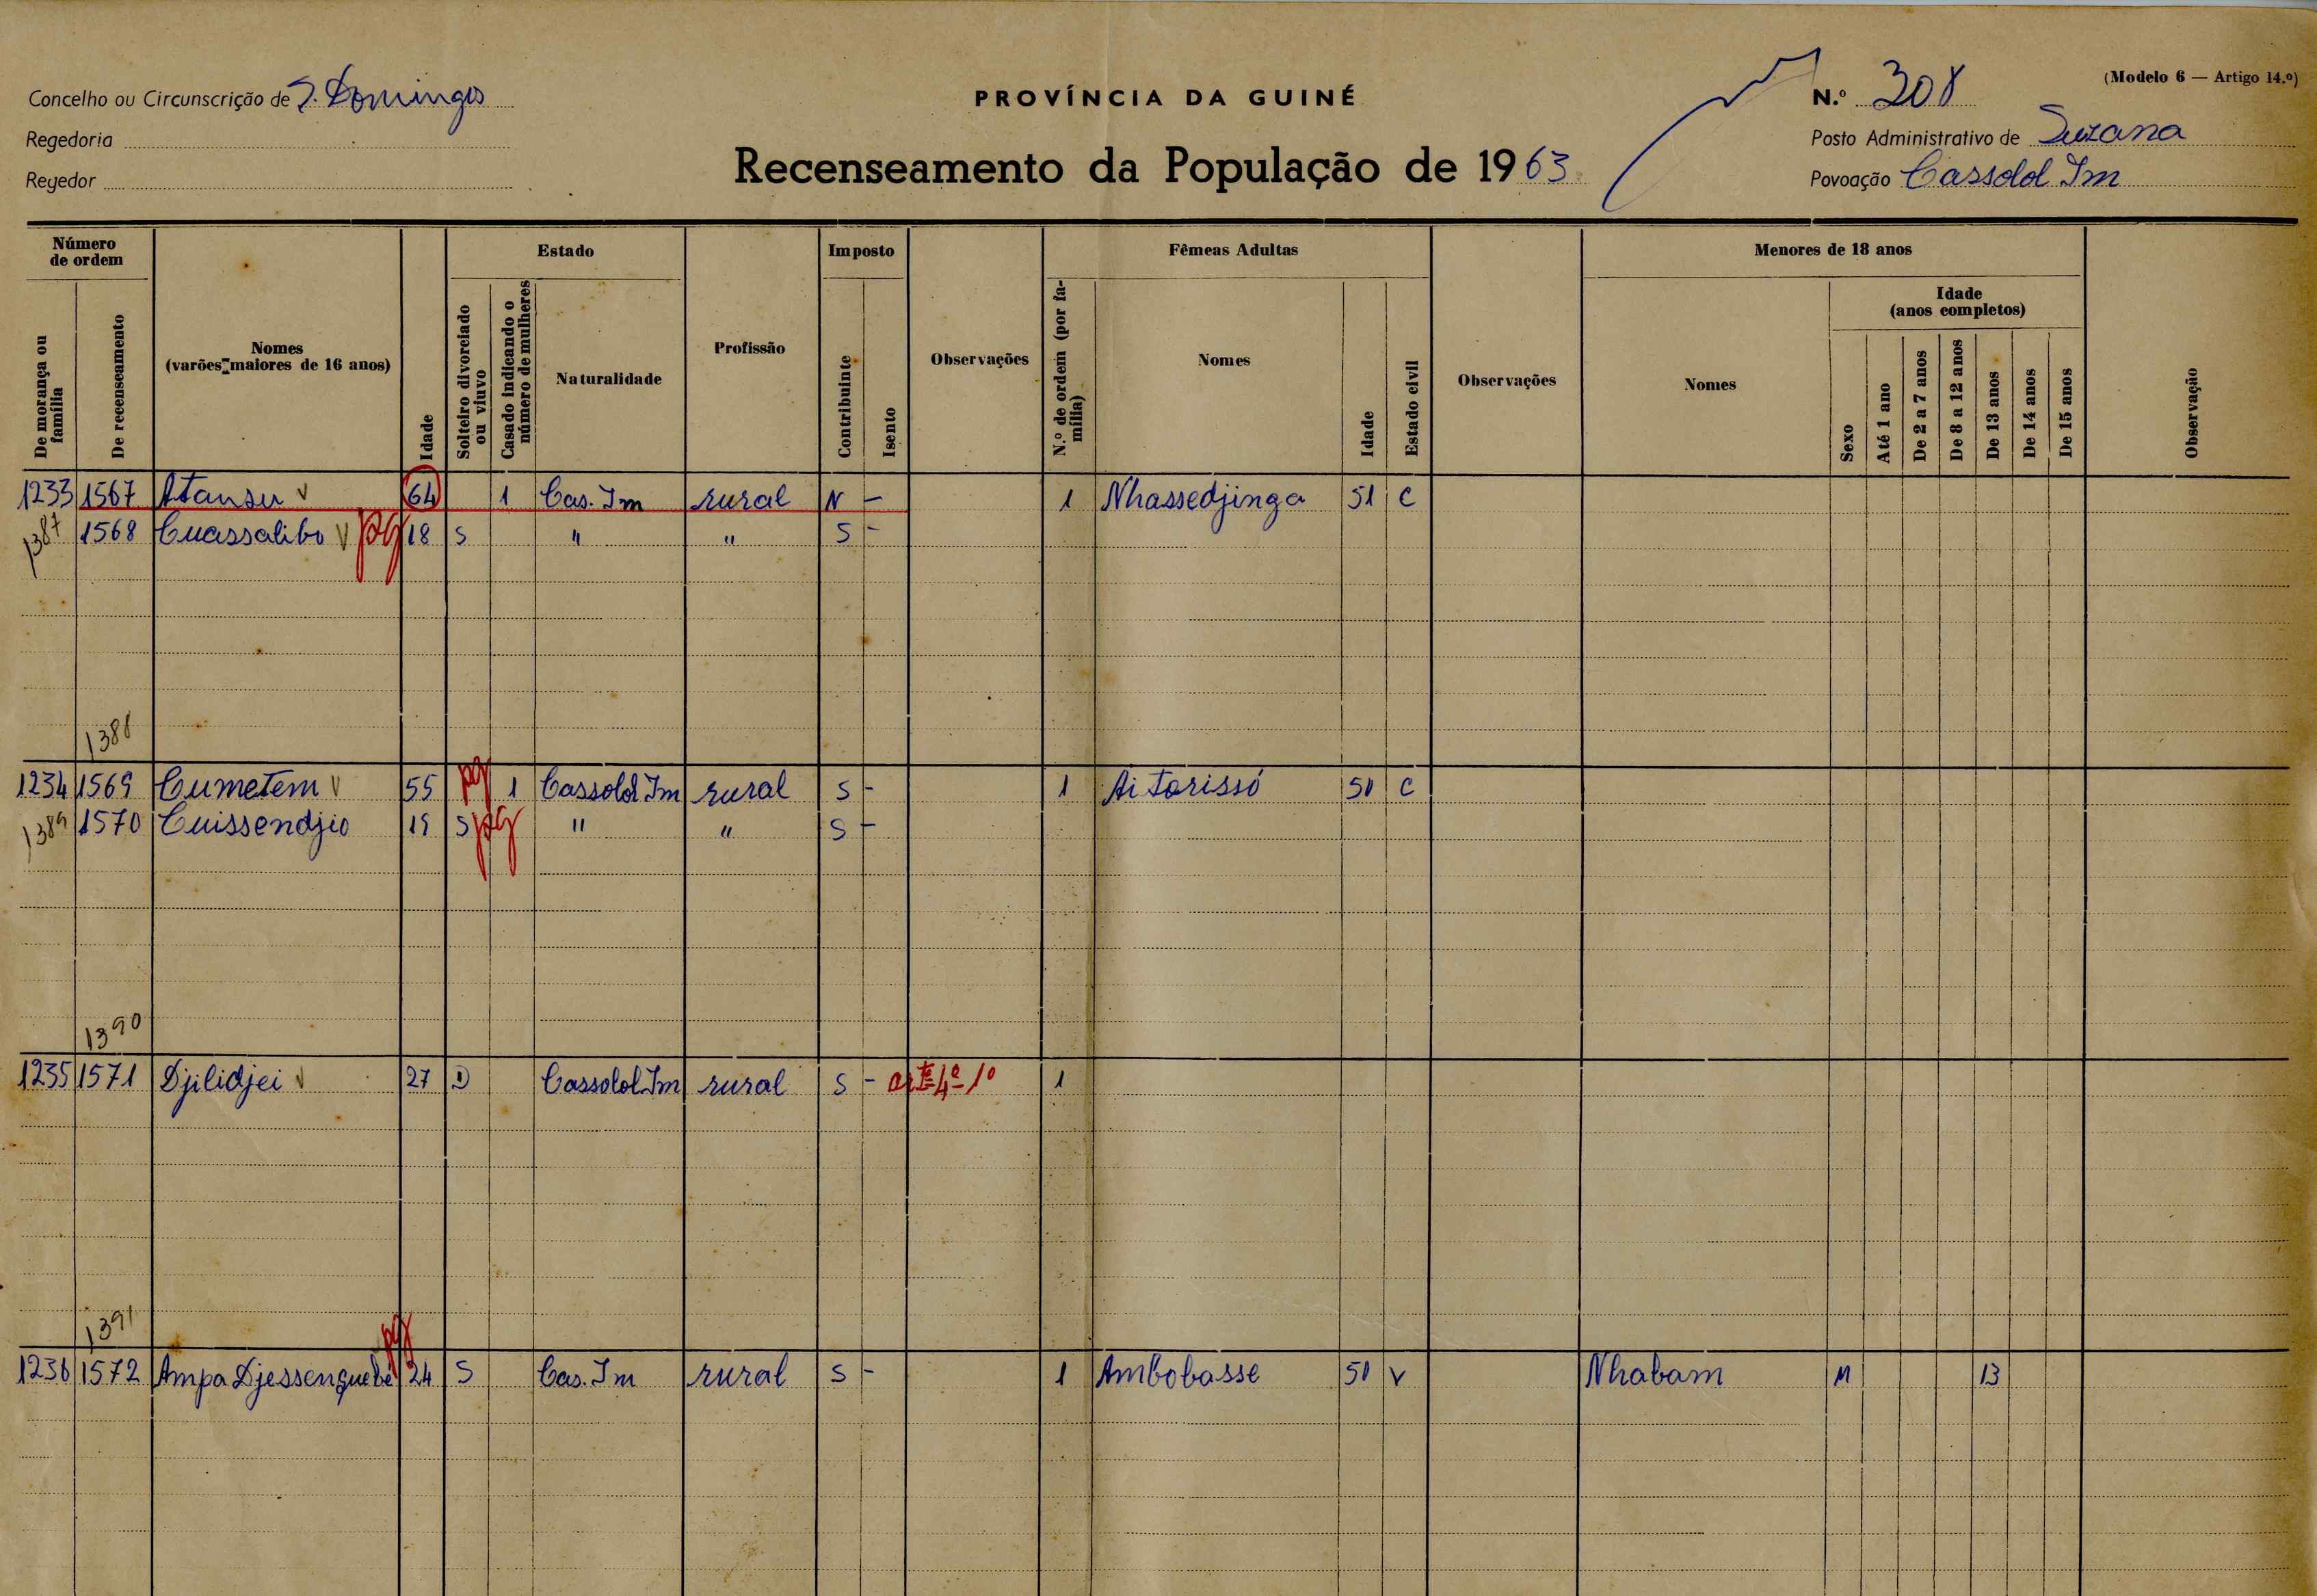 Concelho ou Circunscrição de S. Domingos
Regedoria
Regedor
PROVÍNCIA DA GUINÉ
Recenseamento da População de 1963
(Modelo 6 — Artigo 14.º)
N.º 308
Posto Administrativo de Suzana
Povoação Cassolol Im
Número de ordem
De morança ou família
De recenseamento
Nomes (varões maiores de 16 anos)
Idade
Estado
Solteiro divorciado ou viuvo
Casado indicando o número de mulheres
Naturalidade
Profissão
Imposto
Contribuinte
Isento
Observações
Fêmeas Adultas
N.º de ordem (por família)
Nomes
Idade
Estado civil
Observações
Menores de 18 anos
Nomes
Idade (anos completos)
Sexo
Até 1 ano
De 2 a 7 anos
De 8 a 12 anos
De 13 anos
De 14 anos
De 15 anos
Observação
1233 1567 Atansu V 64 1 Cas. Im rural N - 1 Nhassedjinga 51 C
1387 1568 Cuassalibo V pg 18 S " " S -
1388
1234 1569 Cumetem V 55 pg 1 Cassolol Im rural S - 1 Ai Torissó 50 C
1389 1570 Cuissendjio 19 S pg " " S -
1390
1235 1571 Djilidjei V 27 D Cassolol Im rural S - artº 4º 1º 1
1391
1236 1572 Ampa Djessenguebé pg 24 S Cas. Im rural S - 1 Ambobasse 50 V Nhabam M 13